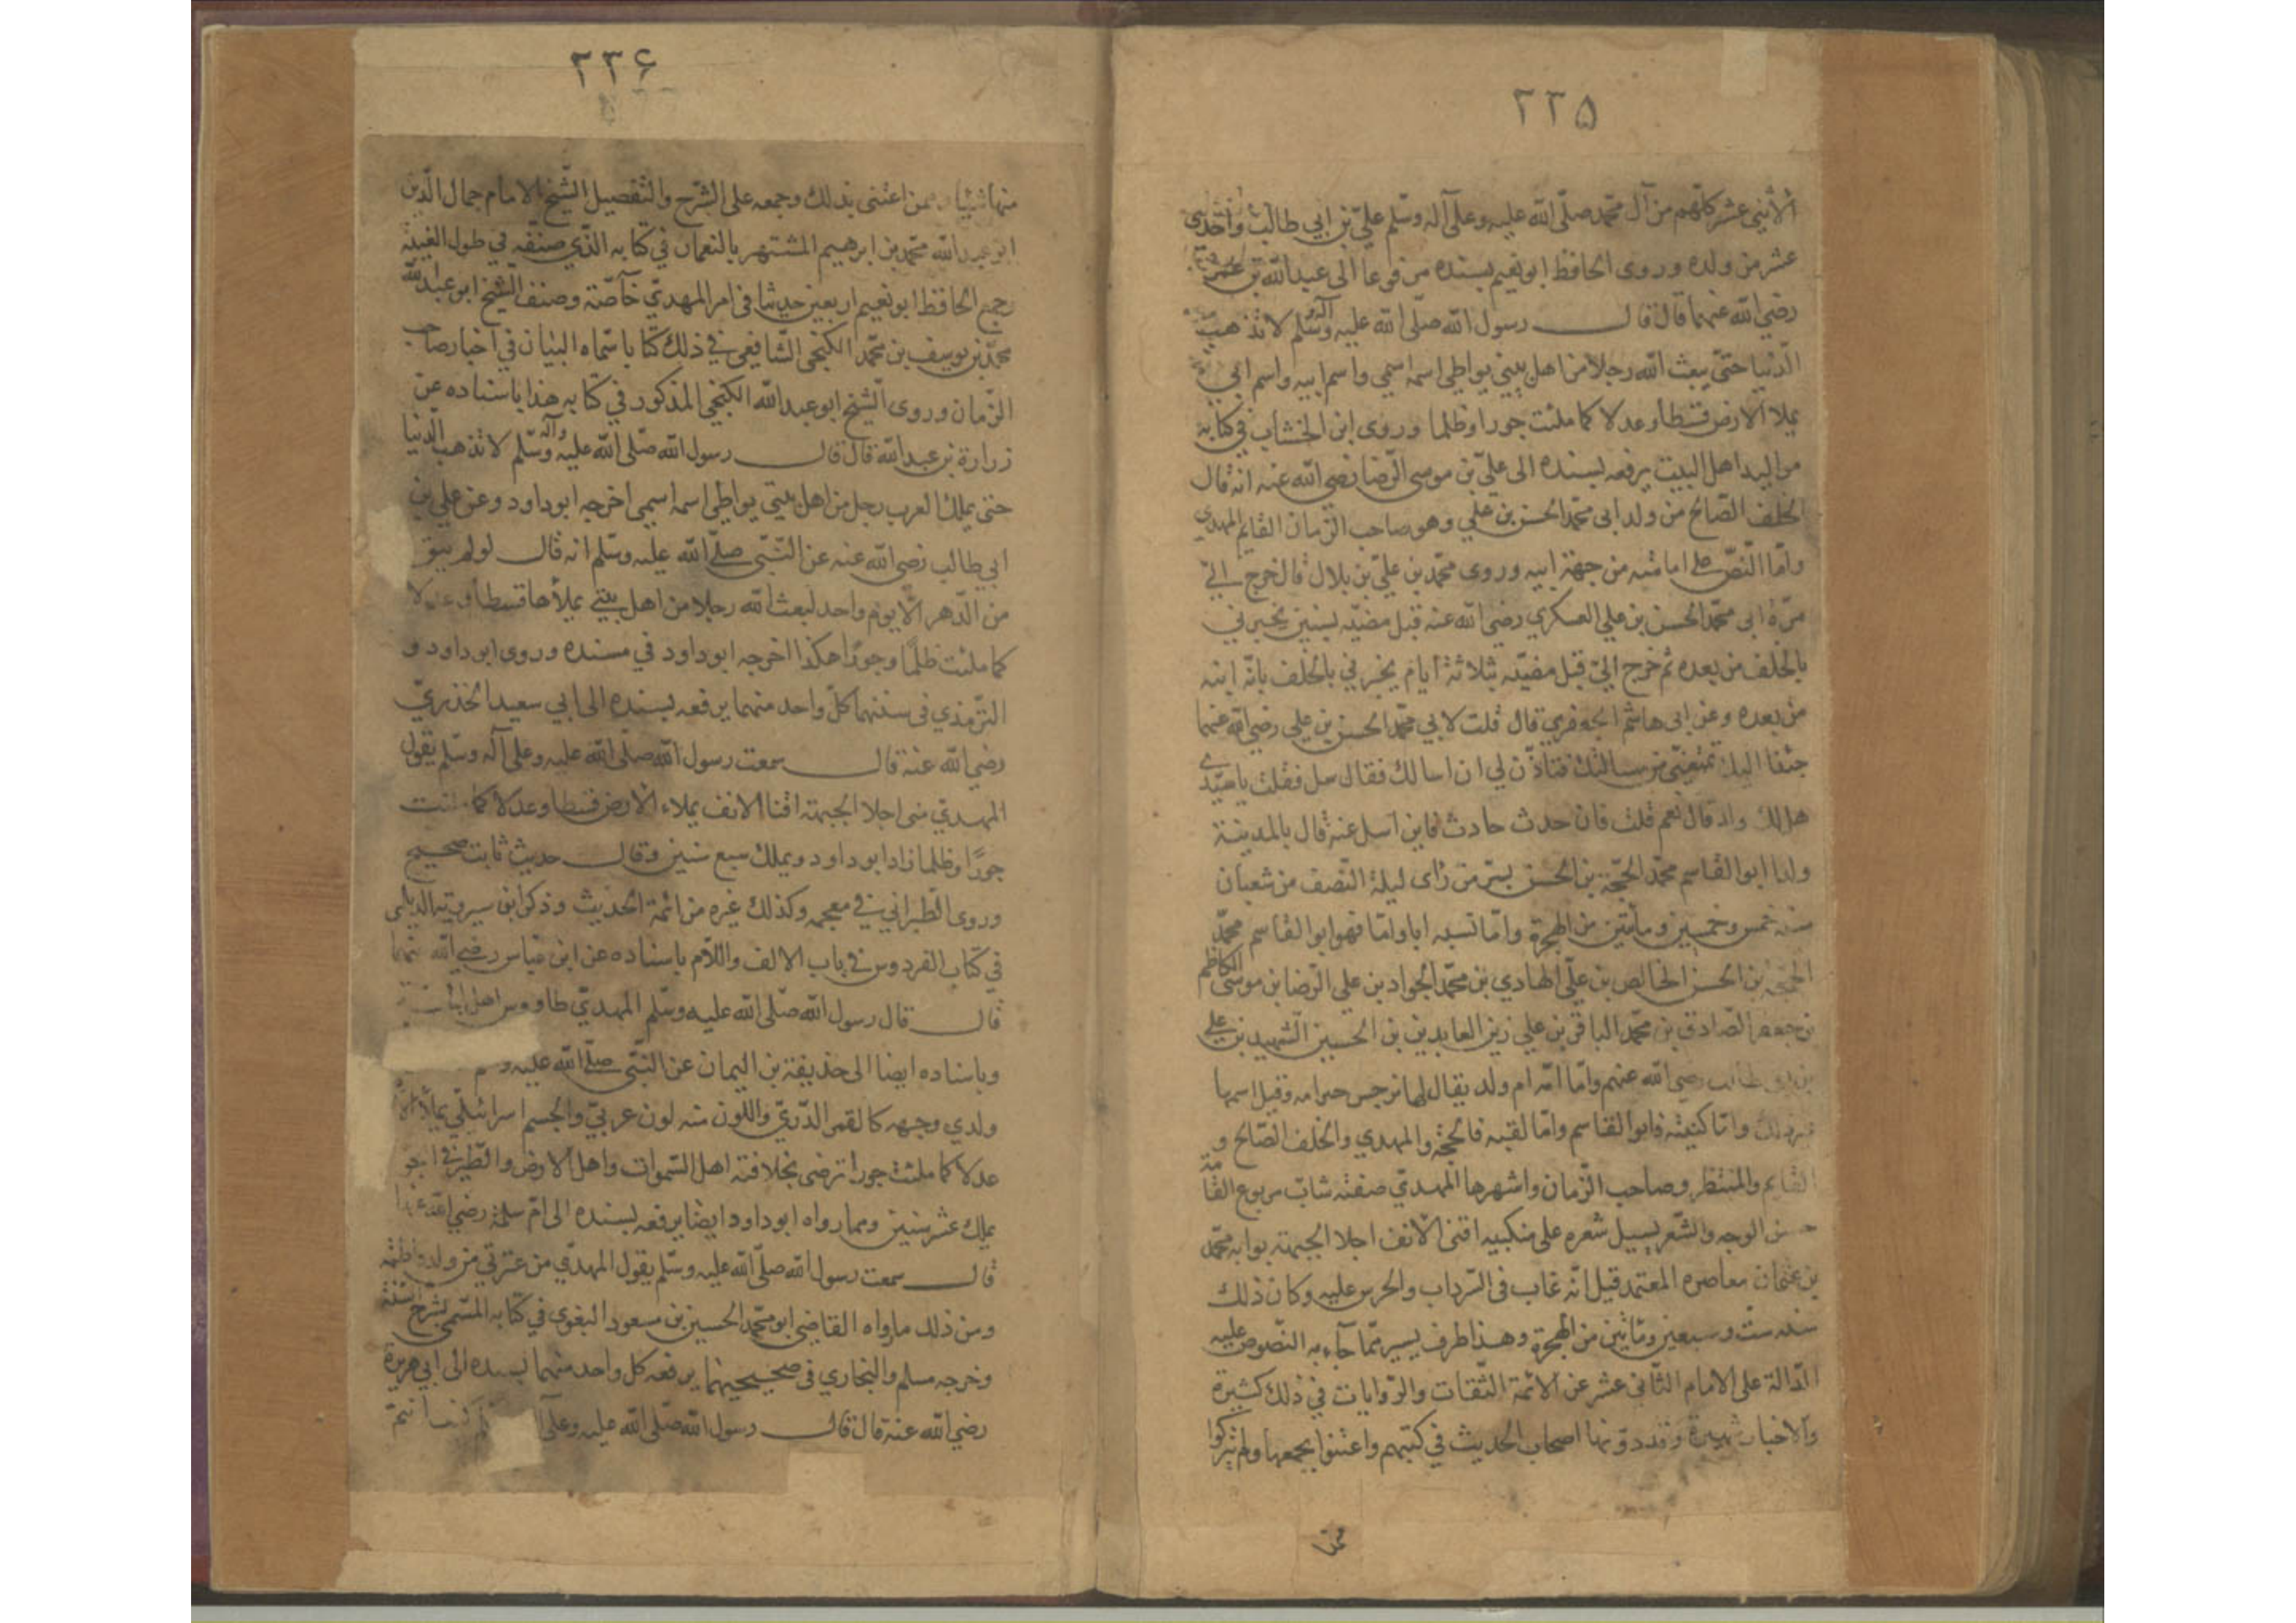 ٢٢٥
الاثنى عشر كلّهم من آل محمّد صلّى الله عليه وعلى آله وسلّم عليّ بن ابي طالب واحدى
عشر من ولده وروى الحافظ ابو نعيم بسنده مرفوعا الى عبد الله بن عمر
رضي الله عنهما قال قال رسول الله صلّى الله عليه وآله وسلّم لا تذهب
الدّنيا حتّى يبعث الله رجلا من اهل بيتي يواطي اسمه اسمي واسم ابيه واسم ابي
يملا الارض قسطا وعدلا كما ملئت جورا وظلما وروى ابن الخشاب في كتابه
مواليد اهل البيت يرفعه بسنده الى عليّ بن موسى الرّضا رضي الله عنه انه قال
الخلف الصّالح من ولد ابى محمّد الحسن بن علي وهو صاحب الزّمان القايم المهدي
وامّا النّصّ على امامته من جهة ابيه وروى محمّد بن عليّ بن بلال قال خرج اليّ
مرّة ابى محمّد الحسن بن علي العسكري رضي الله عنه قبل مضيّه بسنين يخبرني
بالخلف من بعده ثم خرج اليّ قبل مضيّه بثلاثة ايام يخبرني بالخلف بانّه ابنه
من بعده وعن ابى هاشم الجعفري قال قلت لابي محمّد الحسن بن علي رضي الله عنهما
من مسالتك فتاذن لي ان اسالك فقال سل فقلت يا سيّدي
هل لك ولد قال نعم قلت فان حدث حادث فاين اسل عنه قال بالمدينة
ولد ابو القاسم محمّد الحجّة بن الحسن بسرّ من رٰاى ليلة النّصف من شعبان
سنة خمس وخمسين ومأتين من الهجرة وامّا نسبه ابا وامّا فهو ابو القاسم محمّد
الحجّة بن الحسن الخالص بن عليّ الهادي بن محمّد الجواد بن علي الرّضا بن موسى الكاظم
بن جعفر الصّادق بن محمّد الباقر بن علي زين العابدين بن الحسين الشّهيد بن علي
بن ابى طالب رضي الله عنهم وامّا امّه ام ولد يقال لها نرجس وقيل اسمها
وامّا كنيته فابو القاسم وامّا لقبه فالحجّة والمهدي والخلف الصّالح و
القايم والمنتظر وصاحب الزّمان واشهرها المهديّ صفته شابّ مربوع القامة
حسن الوجه والشّعر يسيل شعره على منكبيه اقنى الانف اجلا الجبهة بوابه محمّد
بن عثمان معاصره المعتمد قيل انّه غاب فى السّرداب والحرس عليه وكان ذلك
سنة ستّ وسبعين ومأتين من الهجرة وهذا طرف يسير ممّا جآء به النّصوص عليه
الدّالة على الامام الثّاني عشر عن الائمّة الثّقات والرّوايات في ذلك كثيرة
والاخبار شهيرة وقد دوّنها اصحاب الحديث في كتبهم واعتنوا بجمعها ولم يتركوا
٢٣۶
منها شيئا وممن اعتنى بذلك وجمعه على الشّرح والتّفصيل الشّيخ الامام جمال الدّين
ابو عبد الله محمّد بن ابرهيم المشتهر بالنعمان في كتابه الذّي صنّفه في طول الغيبة
وجمع الحافظ ابو نعيم اربعين حديثا فى امر المهديّ خآصّة وصنف الشّيخ ابو عبد الله
محمّد بن يوسف بن محمّد الكنجى الشّافعى في ذلك كتابا سّماه البيان في اخبار صاحب
الزّمان وروى الشّيخ ابو عبد الله الكنجى المذكور في كتابه هذا باسناده عن
زرارة بن عبد الله قال قال رسول الله صلّى الله عليه وآله وسّلم لا تذهب الدّنيا
حتى يملك العرب رجل من اهل بيتي يواطي اسمه اسمي اخرجه ابو داود وعن علي بن
ابي طالب رضي الله عنه عن النّبّي صلّى الله عليه وسّلم انه قال لو لم يبق
من الدّهر الّا يوم واحد لبعث الله رجلا من اهل بيتي يملأها قسطا وعدلا
كما ملئت ظلمًا وجورًا هكذا اخرجه ابو داود في مسنده وروى ابو داود و
التّرمذي فى سننهما كلّ واحد منهما يرفعه بسنده الى ابي سعيد الخدريّ
رضي الله عنه قال سمعت رسول الله صلّى الله عليه وعلى آله وسّلم يقول
المهديّ منى اجلا الجبهة اقنا الانف يملاء الارض قسطا وعدلا كما ملئت
جورًا وظلما زاد ابو داود ويملك سبع سنين وقال حديث ثابت صحيح
وروى الطّبراني في معجمه وكذلك غيره من ائمة الحديث وذكر ابن سيرويه الديلمى
في كتاب الفردوس في باب الالف واللّام باسناده عن ابن عباس رضي الله عنهما
قال قال رسول الله صّلى الله عليه وسّلم المهديّ طاووس اهل الجنّة
وباسناده ايضا الى حذيفة بن اليمان عن النّبّى صلّى الله عليه و
ولدي وجهه كالقمر الدّريّ واللّون منه لون عربيّ والجسم اسرائيلّي يملأ
عدلا كما ملئت جورا ترضى بخلافته اهل السّموات واهل الارض والطّير فى الجو
يملك عشر سنين ومما رواه ابو داود ايضا يرفعه بسنده الى امّ سلمة رضي الله عنها
قال سمعت رسول الله صلّى الله عليه وسّلم يقول المهدّي من عترتي من ولد فاطمة
ومن ذلك ما رواه القاضي ابو محمّد الحسين بن مسعود البغوي في كتابه المسّمى بشرح السّنة
وخرجه مسلم والبخاري فى صحيحيهما يرفعه كل واحد منهما بسنده الى ابي هريرة
رضي الله عنه قال قال رسول الله صلّى الله عليه وعلى